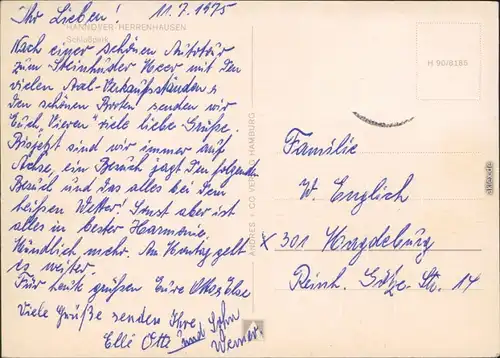 Ihr Lieben! 11.7.1975
HANNOVER-HERRENHAUSEN
Schloßpark
Nach einer schönen Autotour
zum Steinhuder Meer mit den
vielen Aal-Verkaufsständen &
den schönen Booten senden wir
Euch „Vieren" viele liebe Grüße.
Bisjetzt sind wir immer auf
Achse, ein Besuch jagt den folgenden
Besuch und das alles bei dem
heißen Wetter! Sonst aber ist
alles in bester Harmonie.
Mündlich mehr. Am Montag geht
es weiter.
Für heute grüßen Eure Ottos, Else
Viele Grüße senden Ihre
Elli Otte und Sohn
Werner
ANDRES + CO VERLAG HAMBURG
H 90/8185
Familie
W. Englich
X 301 Magdeburg
Reinh. Götze-Str. 14